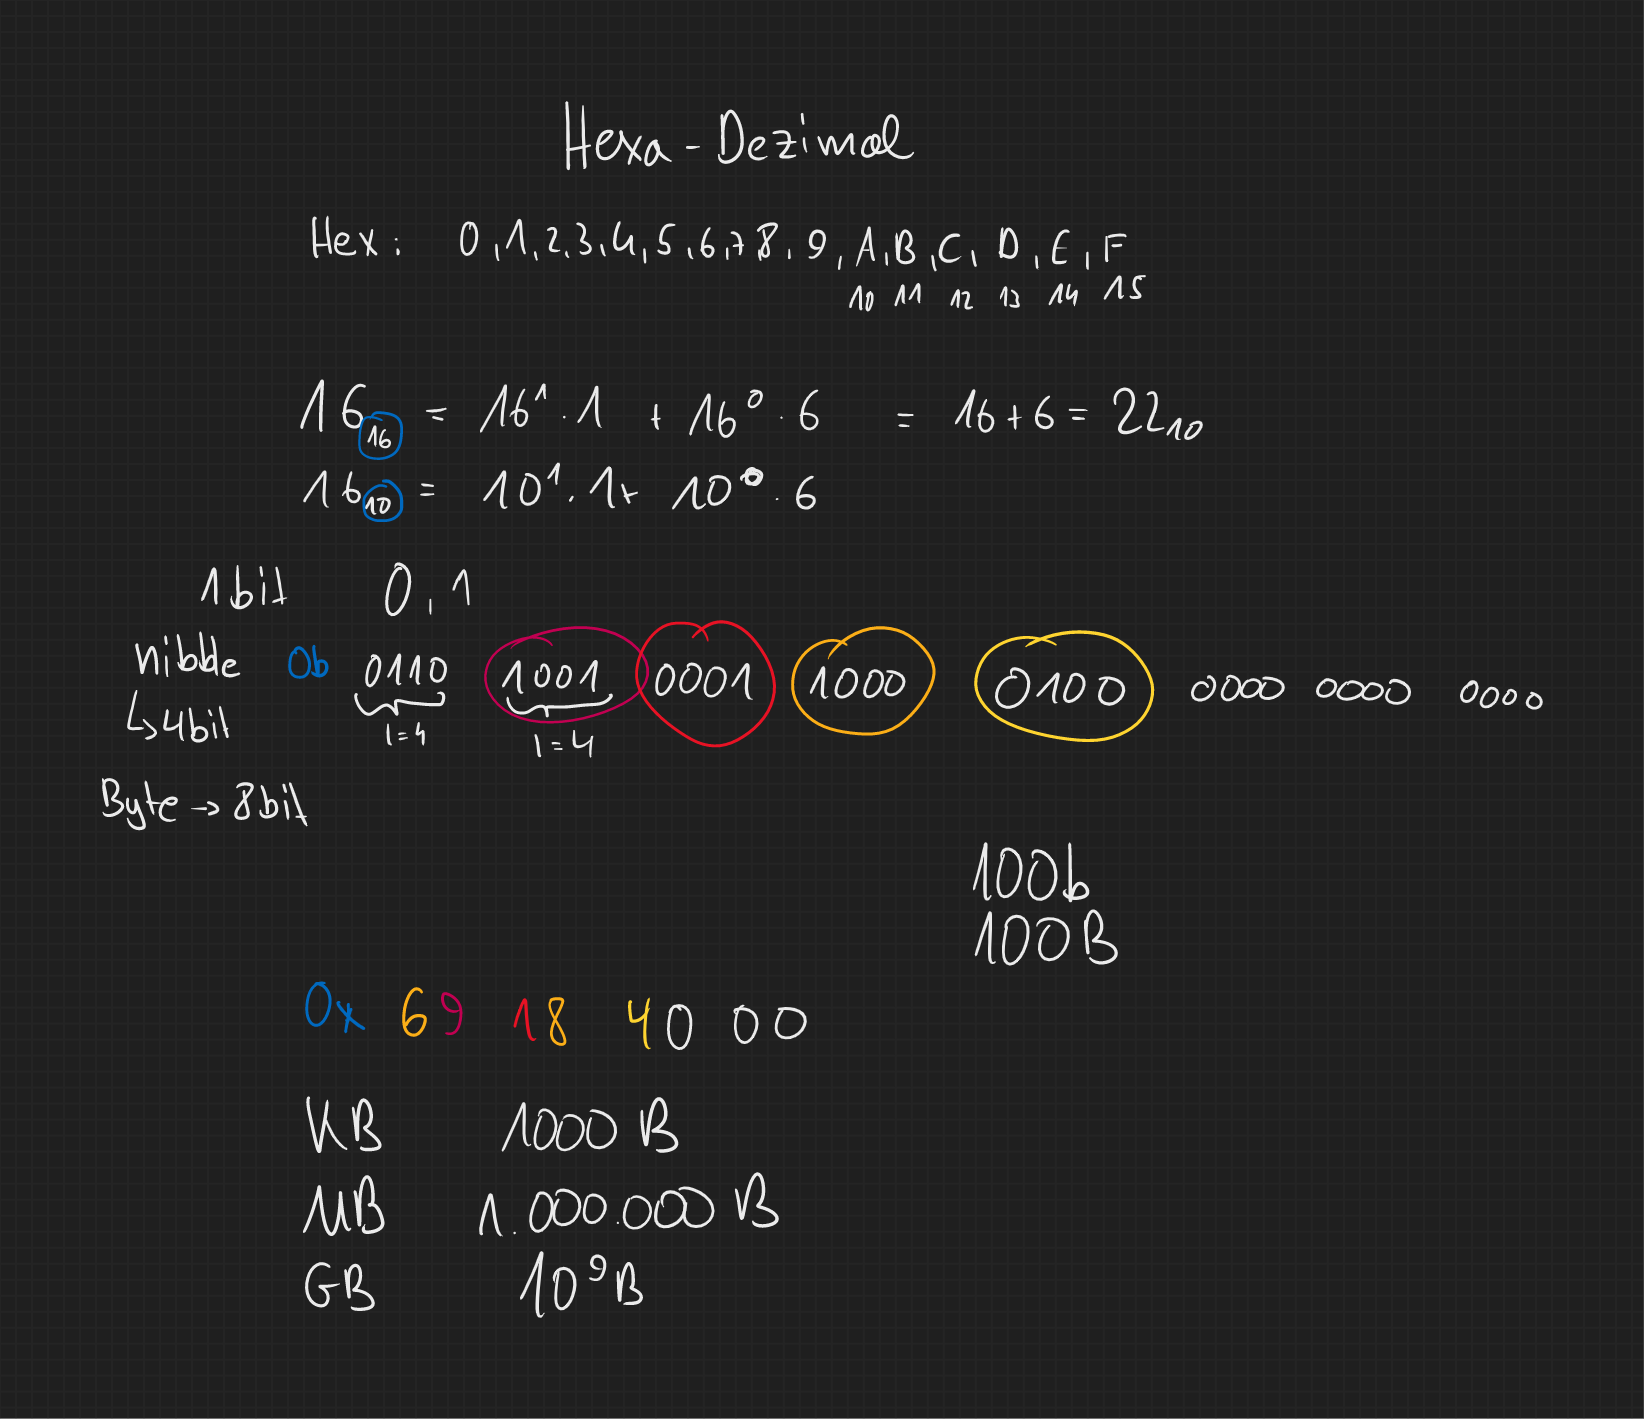 Hexa-Dezimal
Hex: 0,1,2,3,4,5,6,7,8,9,A,B,C,D,E,F
10 11 12 13 14 15
16₁₆ = 16¹·1 + 16⁰·6 = 16+6 = 22₁₀
16₁₀ = 10¹·1+ 10⁰·6
1bit 0,1
nibble 0b 0110 1001 0001 1000 0100 0000 0000 0000
↳4bit l=4 l=4
Byte → 8bit
100b
100B
0x 69 18 40 00
KB 1000 B
MB 1.000.000 B
GB 10⁹B